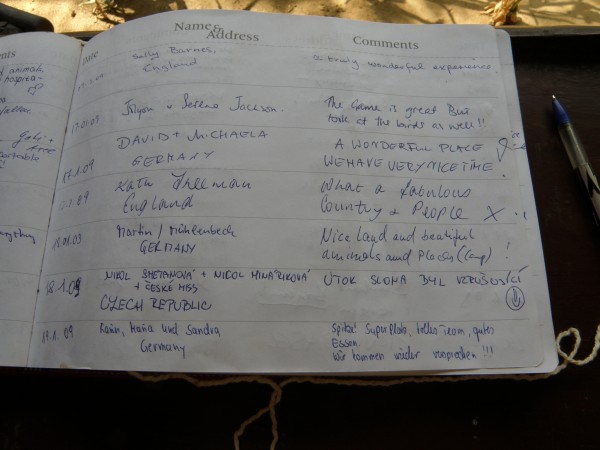 Date
Name & Address
Comments
Sally Barnes.
England
a truly wonderful experience.
17.01.09
Serena Jackson.
The Game is great But
look at the birds as well!!
17.1.09
DAVID + MICHAELA
GERMANY
A WONDERFUL PLACE
WE HAVE VERY NICE TIME.
England
What a fabulous
Country & People X
Martin / Mühlenbeck
GERMANY
Nice land and beatiful
animals and places (Camp) !
18.1.09
NIKOL SMETANOVÁ + NICOL MINÁŘIKOVÁ
+ ČESKÉ MISS
CZECH REPUBLIC
ÚTOK SLONA BYL VZRUŠUJÍCÍ
und Sandra
Germany
Spitze! Superplatz, tolles Team, gutes
Essen.
Wir kommen wieder versprochen !!!